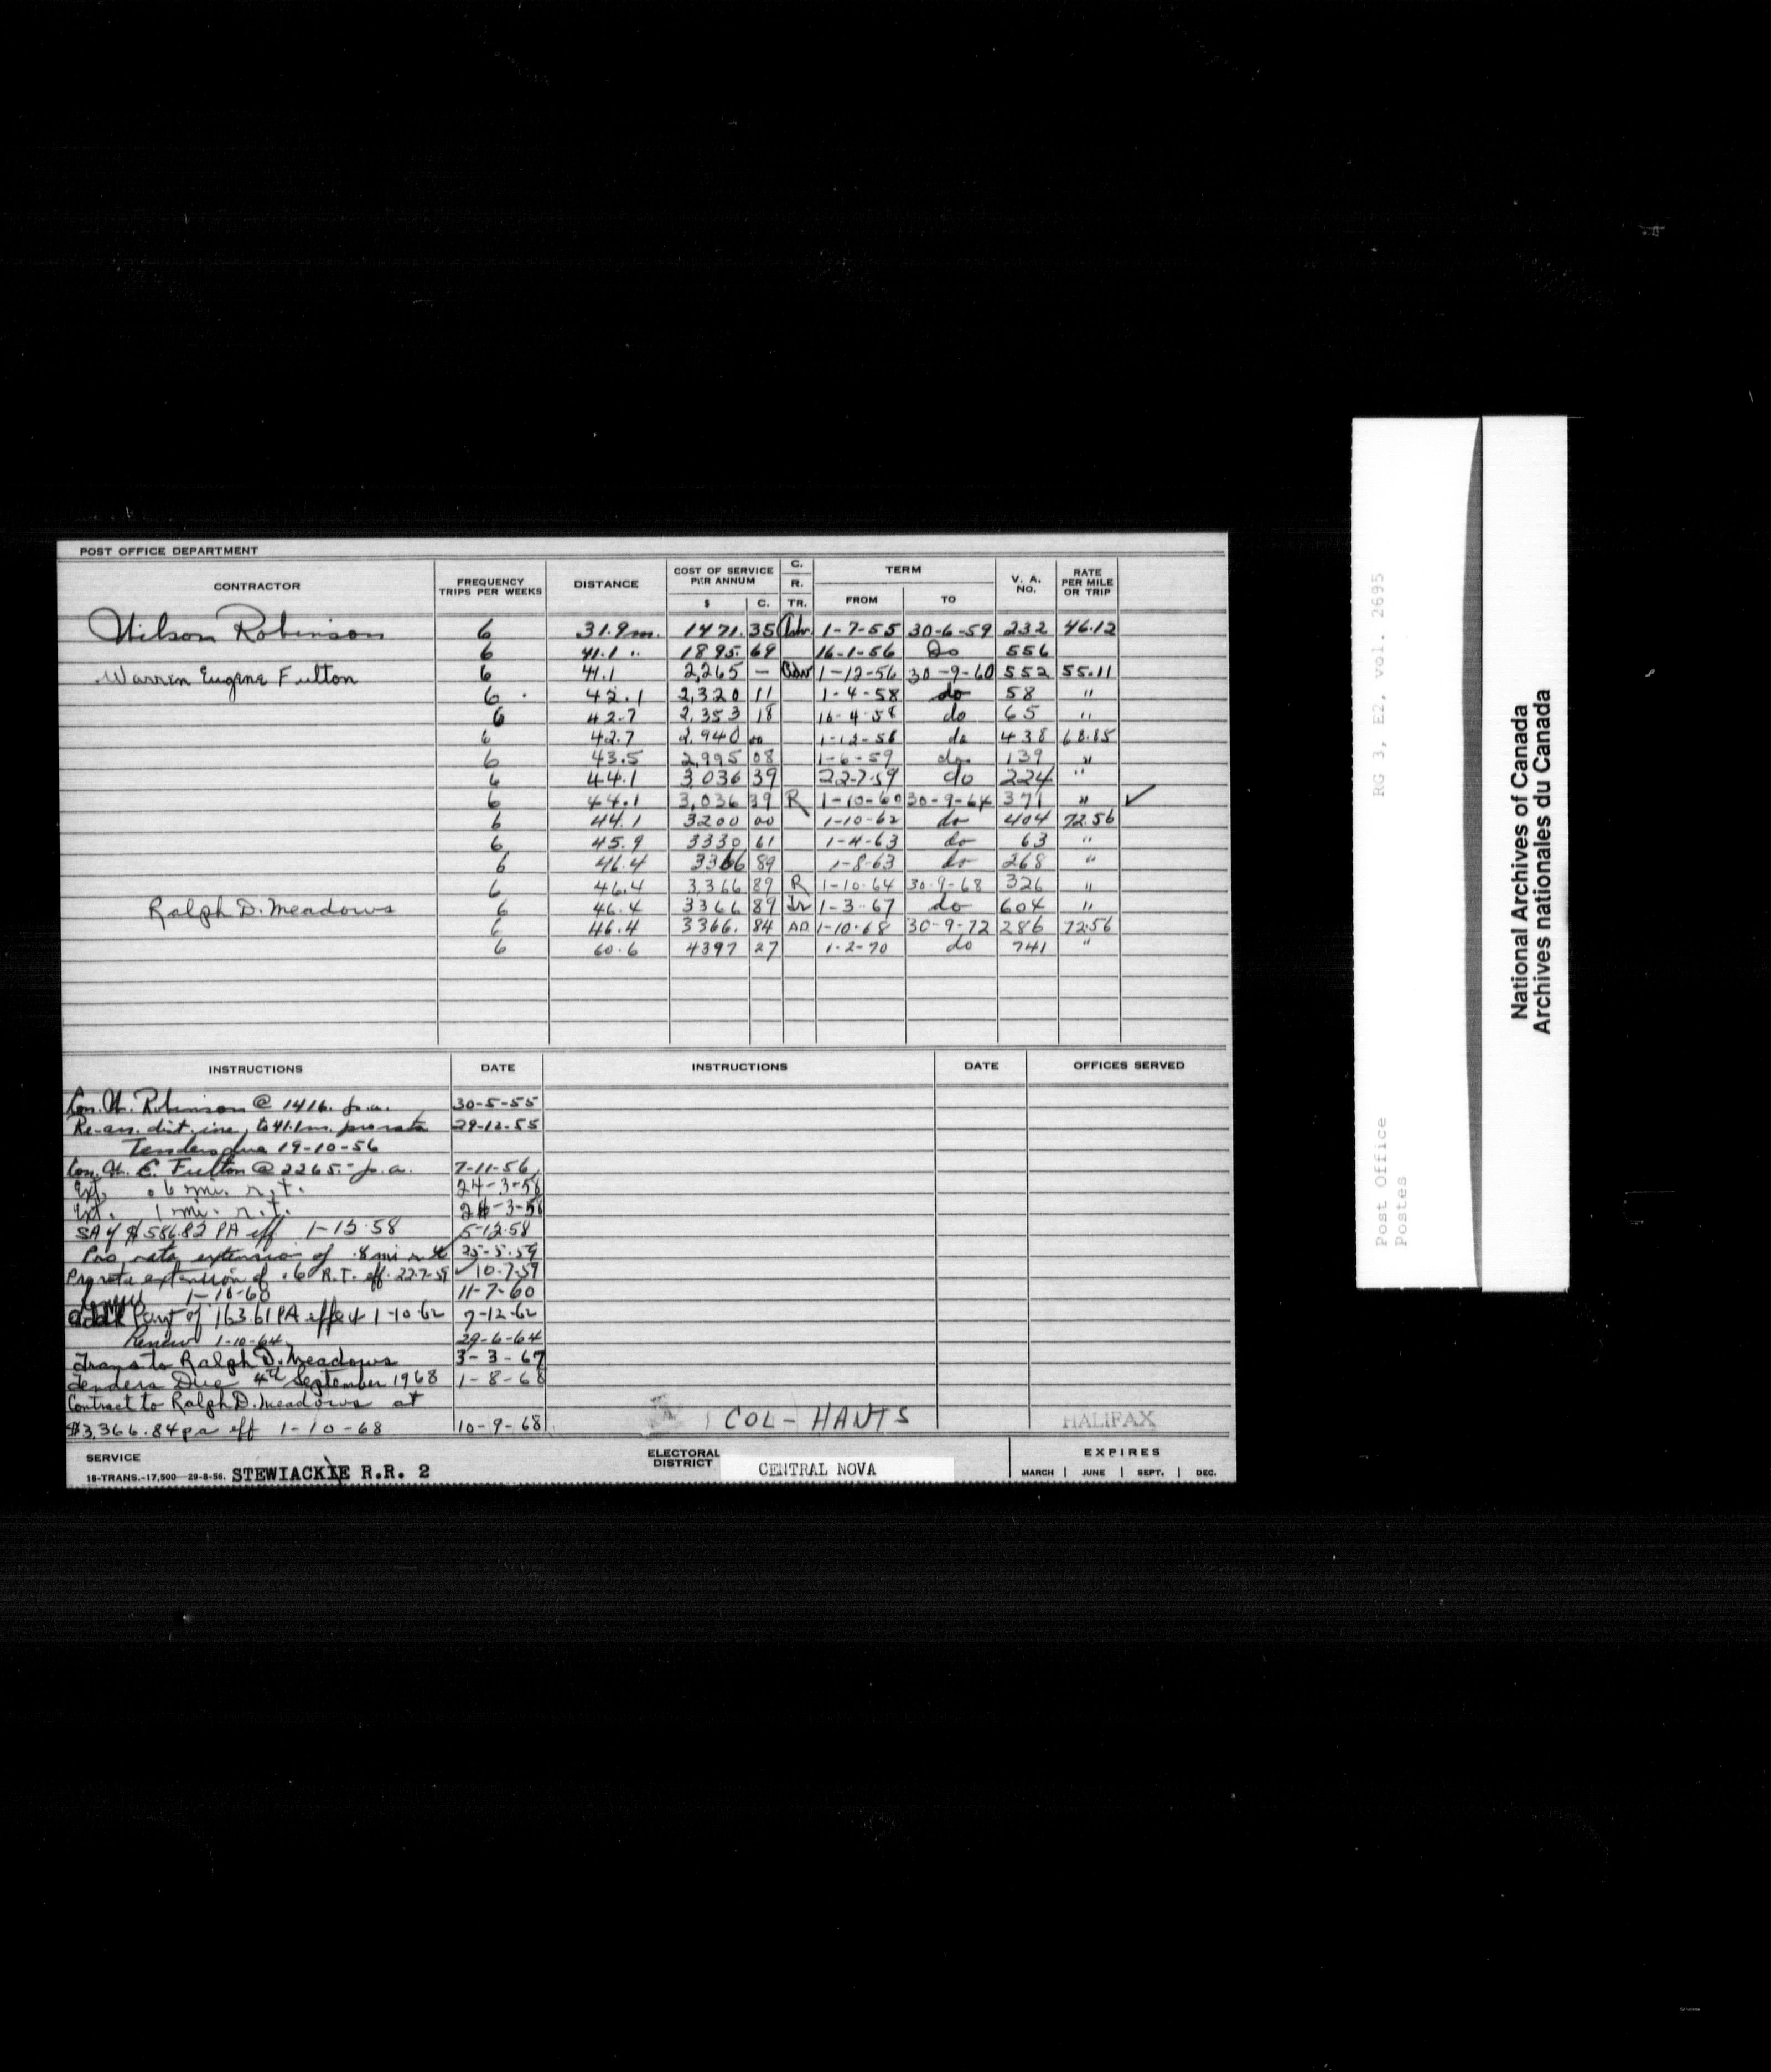 POST OFFICE DEPARTMENT
CONTRACTOR FREQUENCY TRIPS PER WEEKS DISTANCE COST OF SERVICE PER ANNUM $ C. C. R. TR. TERM FROM TO V. A. NO. RATE PER MILE OR TRIP
Wilson Robinson 6 31.9 m. 1471. 35 Adv. 1-7-55 30-6-59 232 46.12
6 41.1 " 1895. 69 16-1-56 Do 556
Warren Eugene Fulton 6 41.1 2,265 — Adv 1-12-56 30-9-60 552 55.11
6 42.1 2,320 11 1-4-58 do 58 "
6 42.7 2,353 18 16-4-58 do 65 "
6 42.7 2,940 00 1-12-58 do 438 68.85
6 43.5 2,995 08 1-6-59 do 139 "
6 44.1 3,036 39 22-7-59 do 224 "
6 44.1 3,036 39 R 1-10-60 30-9-64 371 " ✓
6 44.1 3200 00 1-10-62 do 404 72.56
6 45.9 3330 61 1-4-63 do 63 "
6 46.4 3366 89 1-8-63 do 268 "
6 46.4 3,366 89 R 1-10-64 30-9-68 326 "
Ralph D. Meadows 6 46.4 3366 89 Tr 1-3-67 do 604 "
6 46.4 3366. 84 AD 1-10-68 30-9-72 286 72.56
6 60.6 4397 27 1-2-70 do 741 "
INSTRUCTIONS DATE INSTRUCTIONS DATE OFFICES SERVED
Con. W. Robinson @ 1416. p.a. 30-5-55
Re-arr. dist. inc. to 41.1 m. pro rata 29-12-55
Tenders due 19-10-56
Con. W. E. Fulton @ 2265.- p.a. 7-11-56
Ext. .6 mi. r.t. 24-3-58
Ext. 1 mi. r.t. 24-3-58
SA of $586.82 PA eff. 1-12-58 5-12-58
Pro rata extension of .8 mi 25-5-59
Pro rata extension of .6 R.T. eff. 22-7-59 ✓ 10-7-59
Renew 1-10-60 11-7-60
Addl Payt of 163.61 PA effect 1-10-62 7-12-62
Renew 1-10-64 29-6-64
Trans to Ralph D. Meadows 3-3-67
Tenders Due 4th September 1968 1-8-68
Contract to Ralph D. Meadows at
$3,366.84 pa eff 1-10-68 10-9-68 COL-HANTS HALIFAX
SERVICE STEWIACKE R.R. 2 ELECTORAL DISTRICT CENTRAL NOVA EXPIRES
18-TRANS.-17,500-29-8-56. MARCH | JUNE | SEPT. | DEC.
RG 3, E2, vol. 2695
Post Office
Postes
National Archives of Canada
Archives nationales du Canada